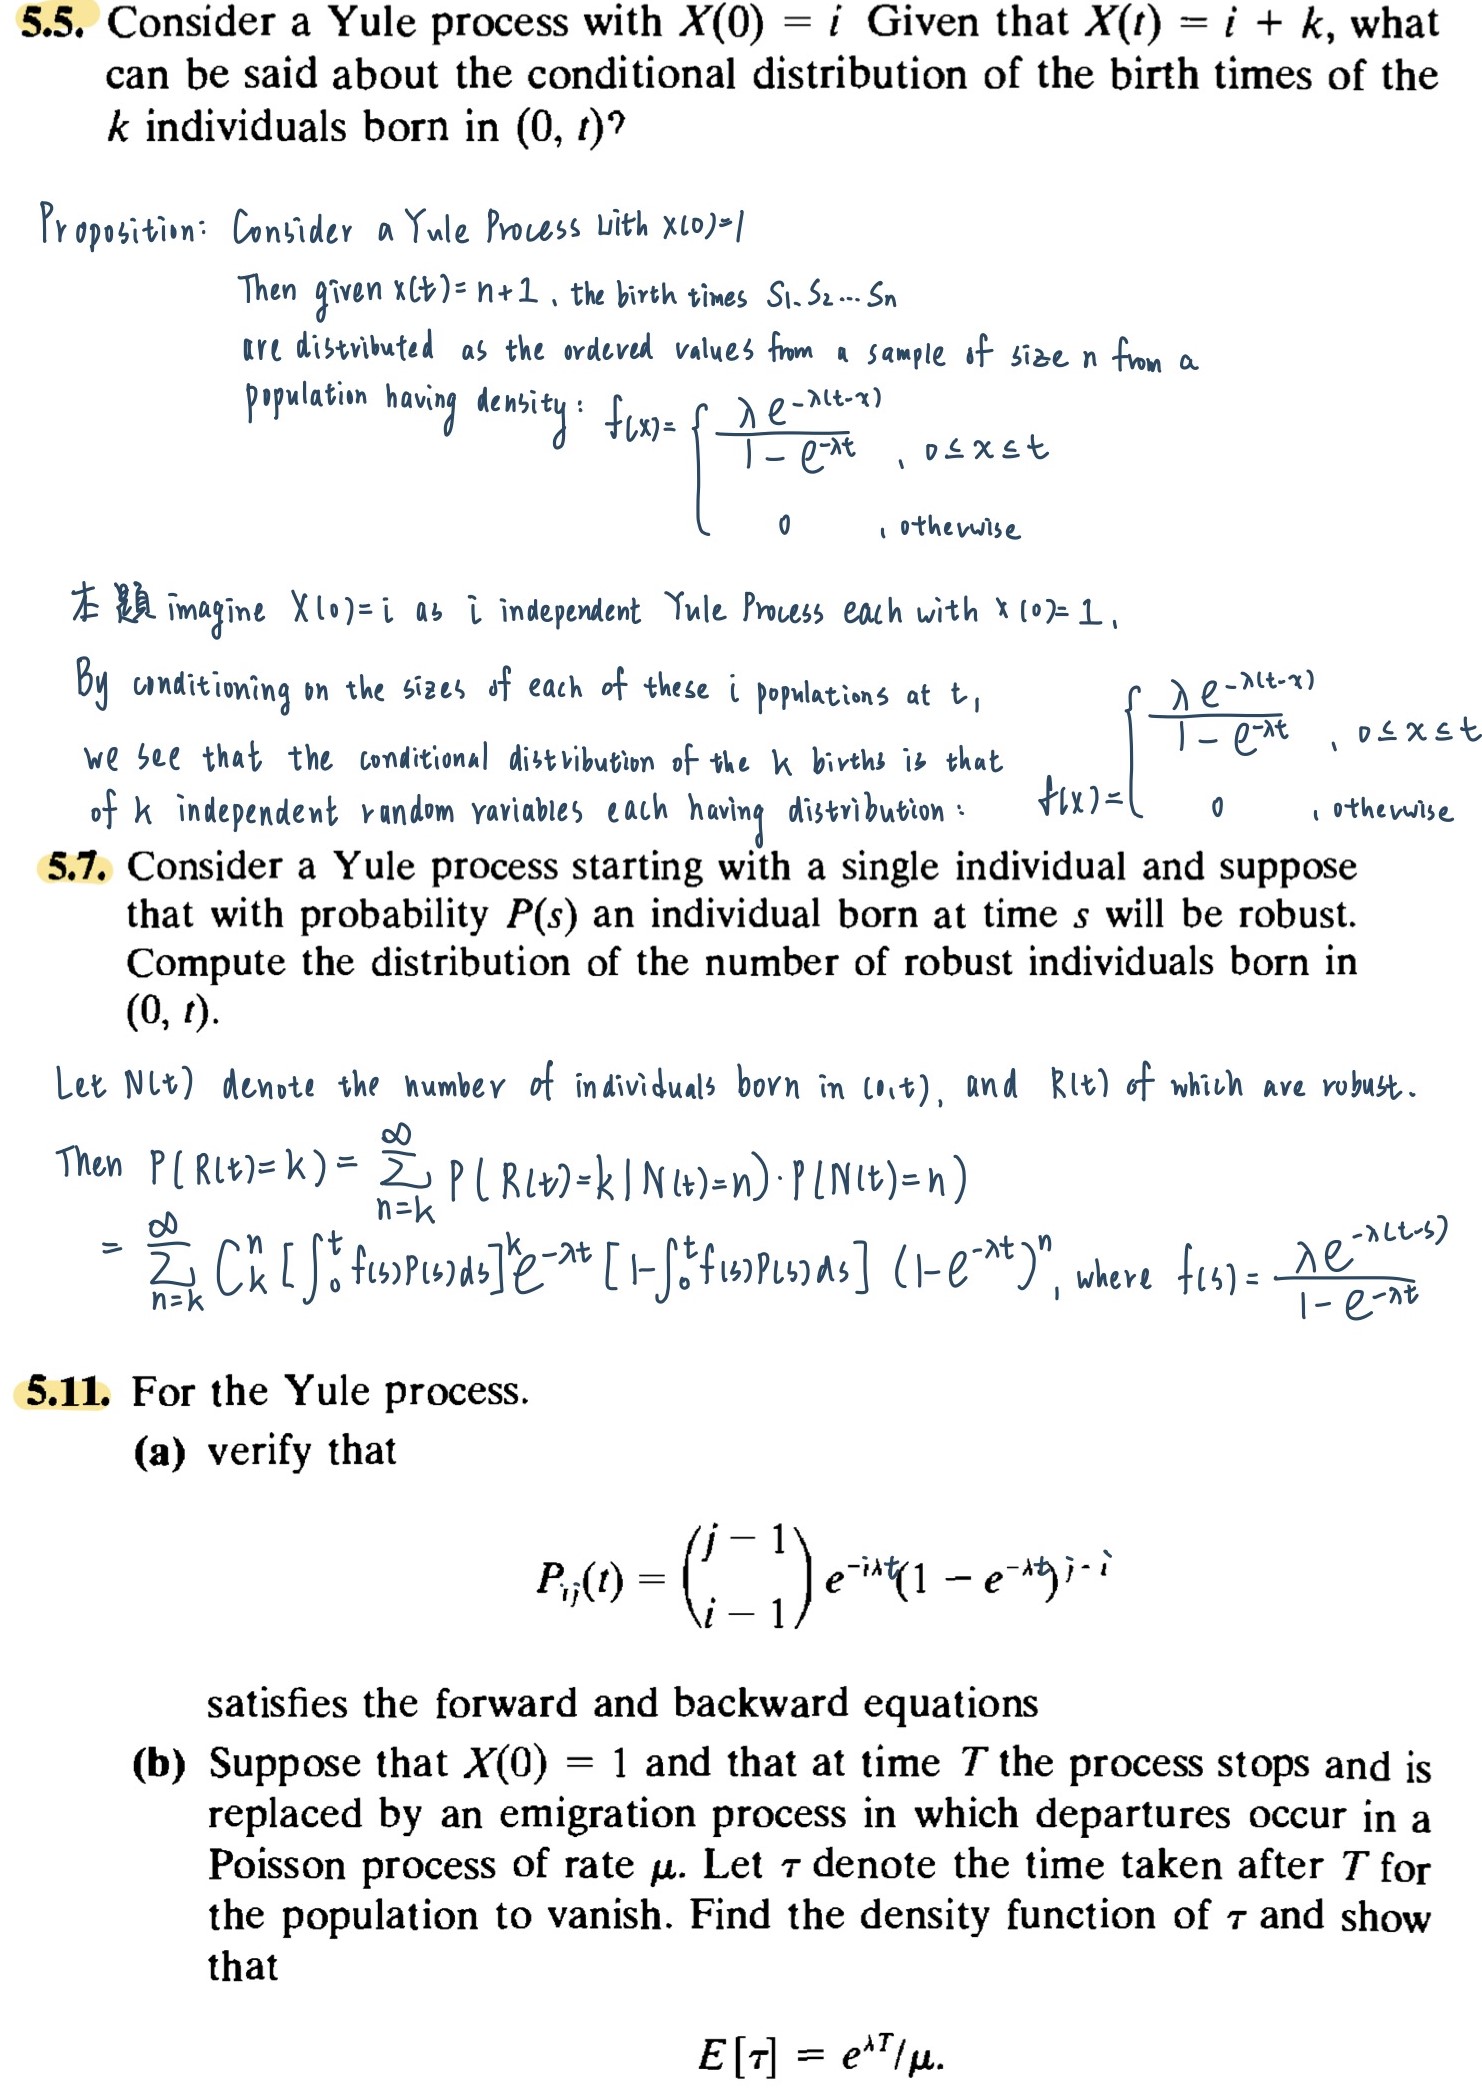 5.5. Consider a Yule process with X(0) = i Given that X(t) = i + k, what
can be said about the conditional distribution of the birth times of the
k individuals born in (0, t)?
Proposition: Consider a Yule Process with x(0)=1
Then given x(t)=n+1, the birth times S1, S2 ... Sn
are distributed as the ordered values from a sample of size n from a
population having density: f(x)= { λe^{-λ(t-x)} / (1-e^{-λt}) , 0≤x≤t
0 , otherwise
本題 imagine X(0)=i as i independent Yule Process each with x(0)=1,
By conditioning on the sizes of each of these i populations at t,
we see that the conditional distribution of the k births is that
of k independent random variables each having distribution: f(x)= { λe^{-λ(t-x)} / (1-e^{-λt}) , 0≤x≤t
0 , otherwise
5.7. Consider a Yule process starting with a single individual and suppose
that with probability P(s) an individual born at time s will be robust.
Compute the distribution of the number of robust individuals born in
(0, t).
Let N(t) denote the number of individuals born in (0,t), and R(t) of which are robust.
Then P(R(t)=k) = Σ_{n=k}^{∞} P(R(t)=k|N(t)=n)·P(N(t)=n)
= Σ_{n=k}^{∞} C_k^n [∫_0^t f(s)P(s)ds]^k e^{-λt} [1-∫_0^t f(s)P(s)ds] (1-e^{-λt})^n, where f(s) = λe^{-λ(t-s)} / (1-e^{-λt})
5.11. For the Yule process.
(a) verify that
P_{ij}(t) = (j − 1 over i − 1) e^{-iλt}(1 − e^{-λt})^{j-i}
satisfies the forward and backward equations
(b) Suppose that X(0) = 1 and that at time T the process stops and is
replaced by an emigration process in which departures occur in a
Poisson process of rate μ. Let τ denote the time taken after T for
the population to vanish. Find the density function of τ and show
that
E[τ] = e^{λT}/μ.